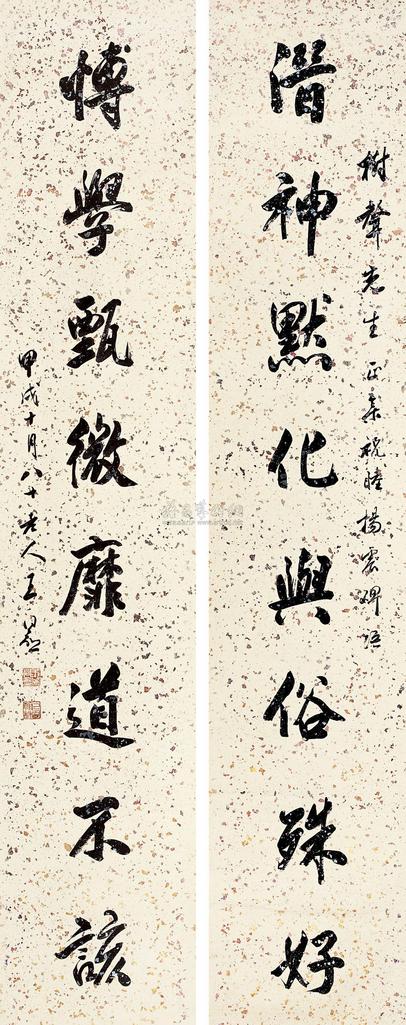 樹聲先生正集祝睦楊震碑語
潛神默化與俗殊好
博學甄微靡道不該
甲戌十月八十老人王